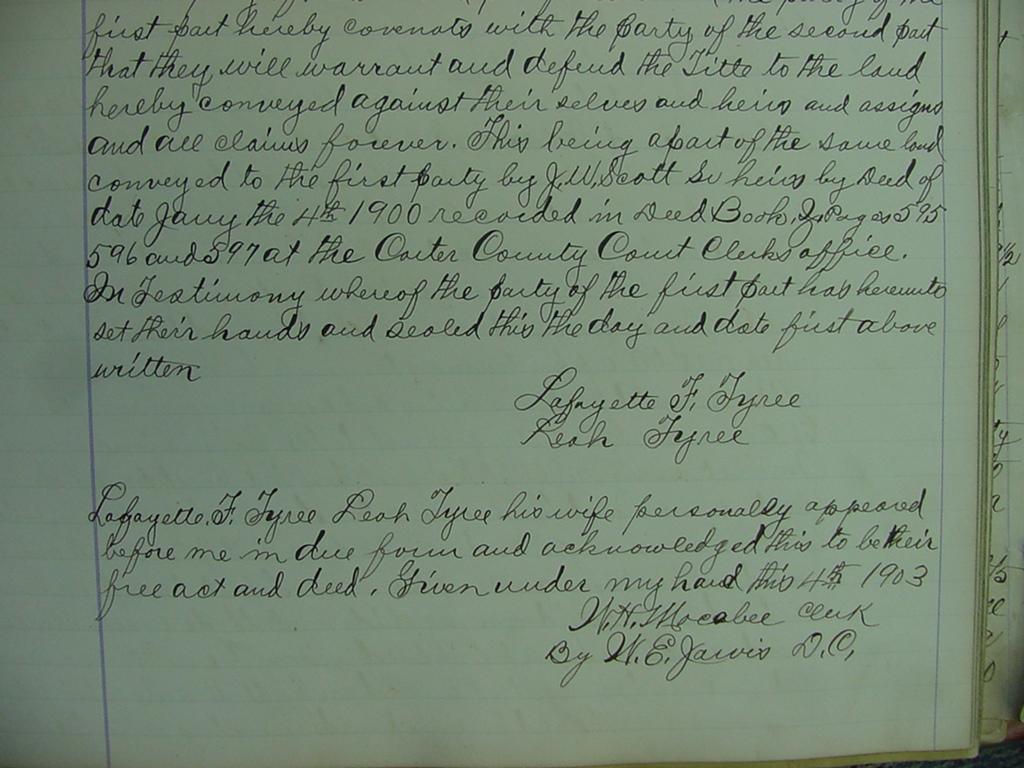 first part hereby covenats with the party of the second part
that they will warrant and defend the Titte to the land
hereby conveyed against their selves and heirs and assigns
and all claims forever. This being apart of the same land
conveyed to the first party by J. W. Scott Sr heirs by Deed of
date Jany the 4th 1900 recorded in Deed Book, Pages 595
596 and 597 at the Carter County Court Clerks office.
In Testimony whereof the party of the first part has hereunto
set their hands and sealed this the day and date first above
written
Lafayette F. Tyree
Leah Tyree
Lafayette. F. Tyree Leah Tyree his wife personaley appeared
before me in due form and acknowledged this to be their
free act and deed. Given under my hand this 4th 1903
W. H. Mocabee Clerk
By W. E. Jarvis D. C.